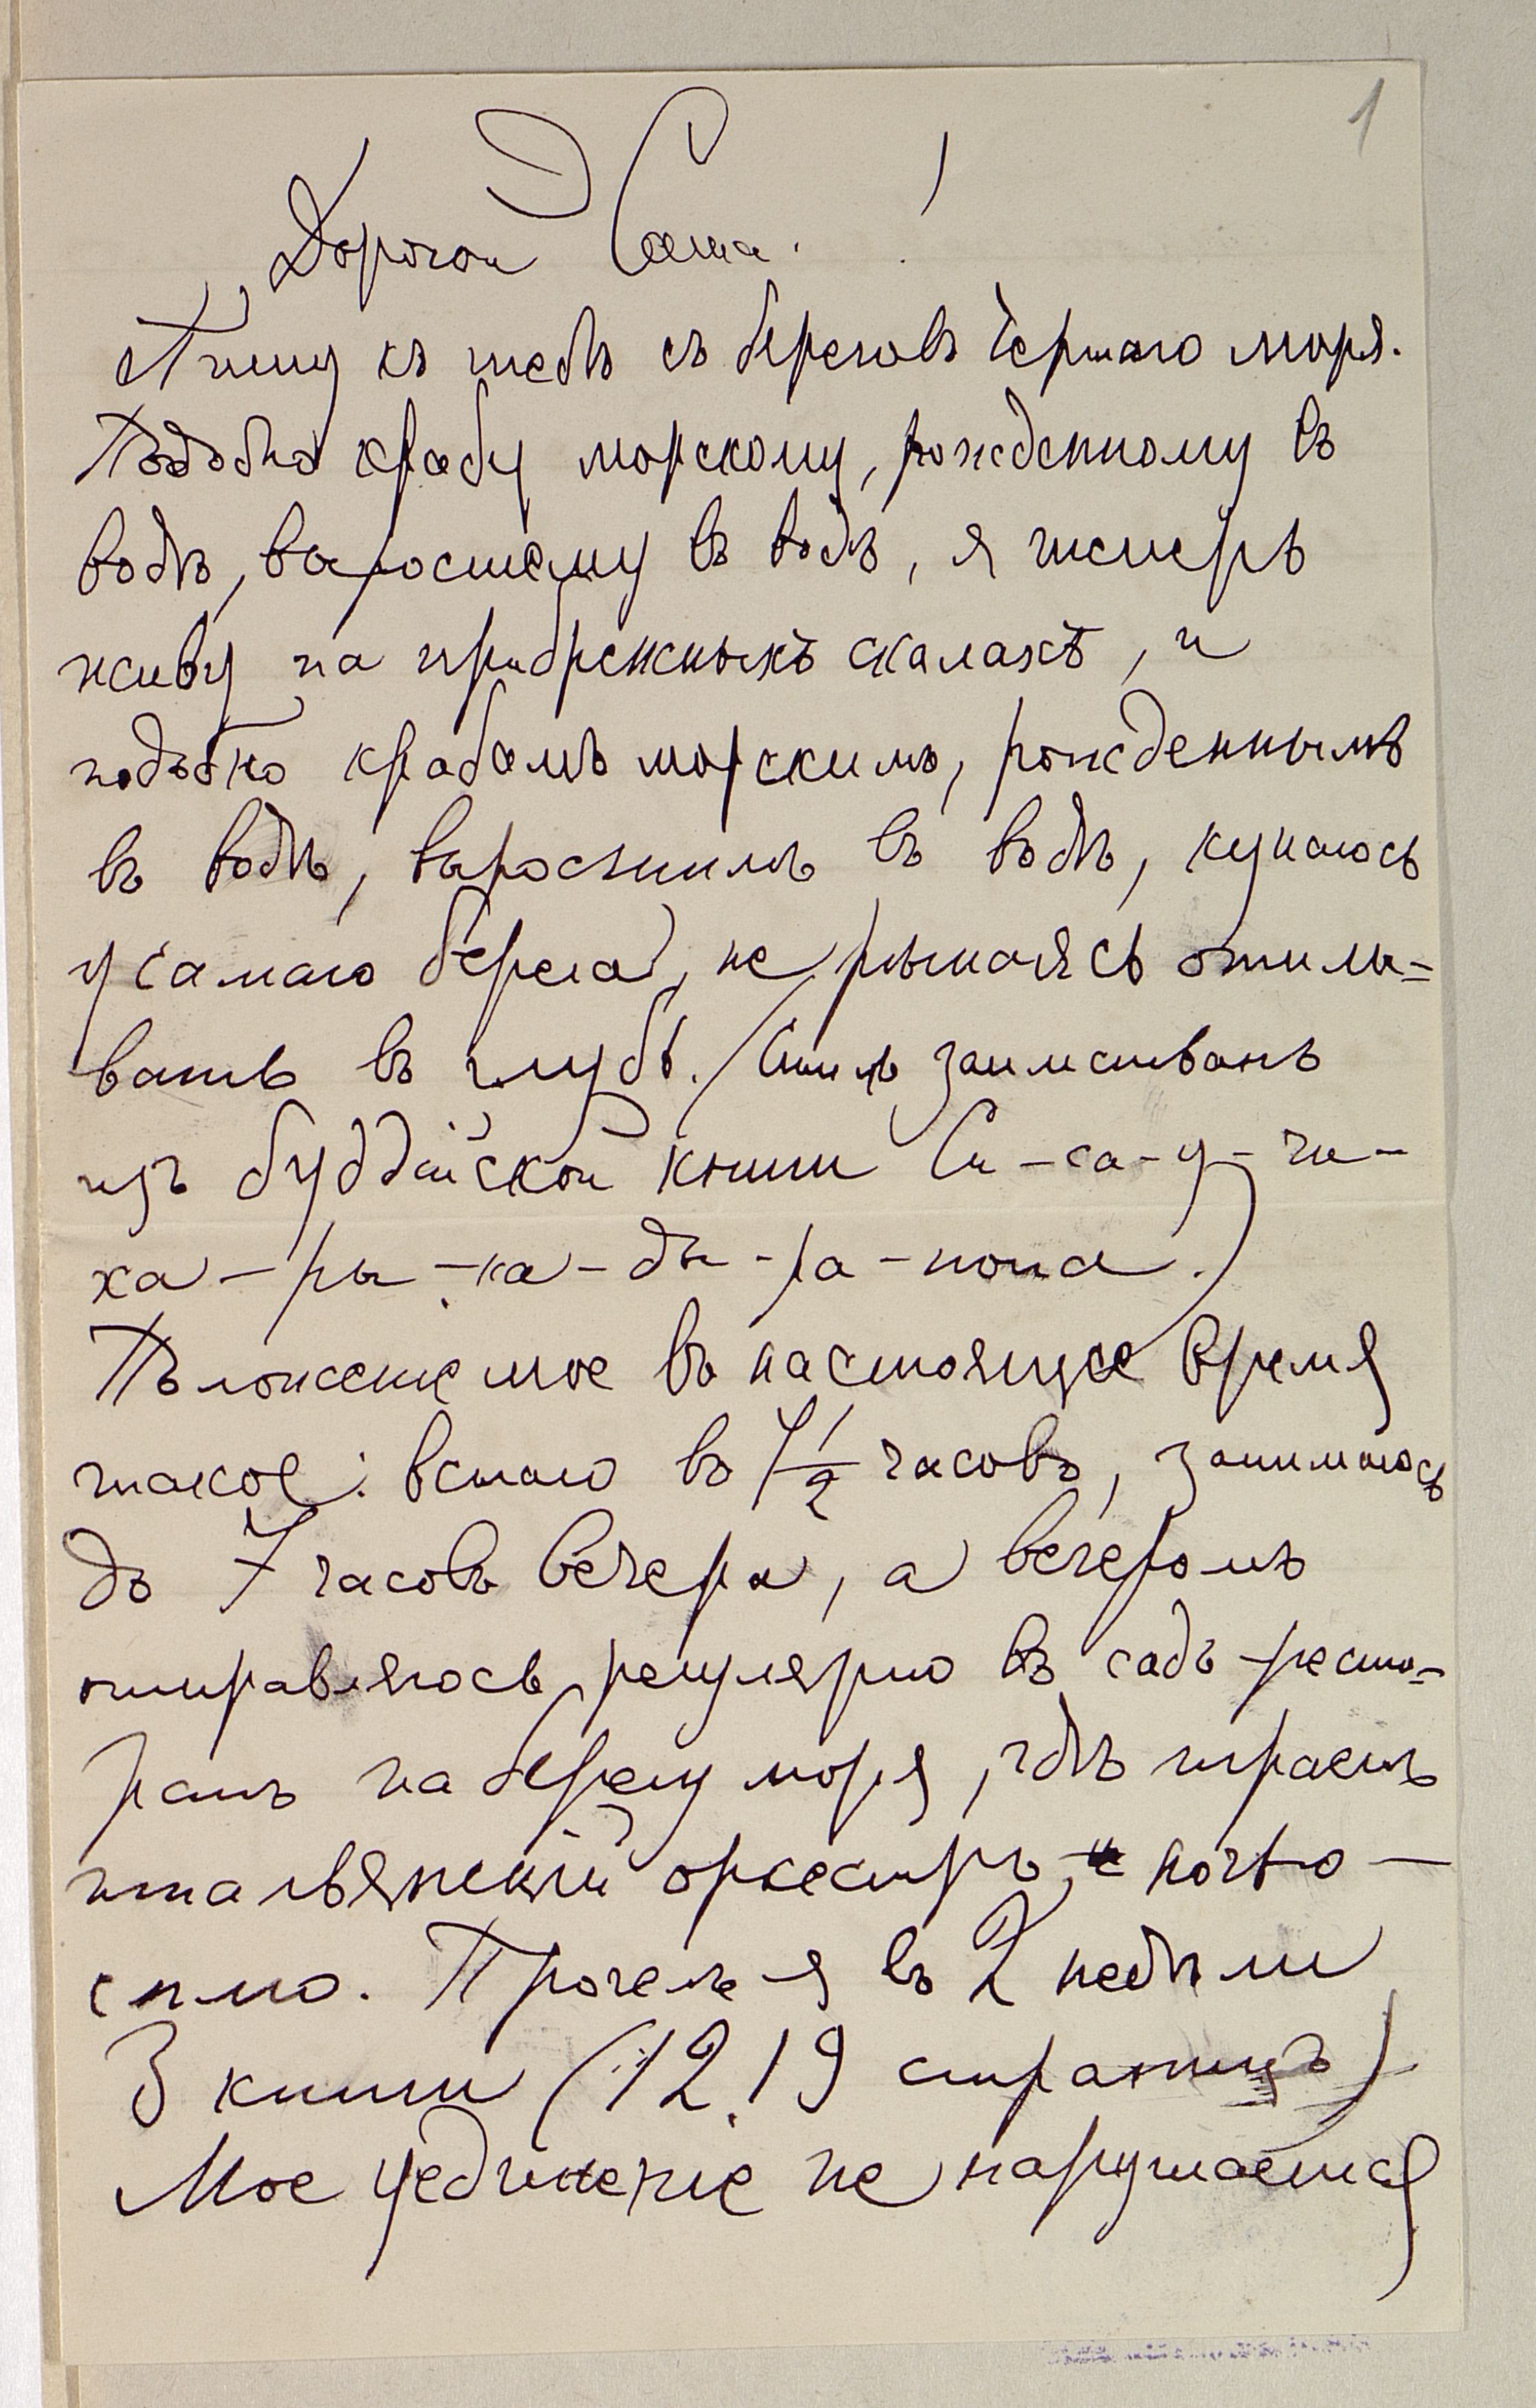 1
Дорогой Саша!
Пишу къ тебѣ съ береговъ Чернаго моря.
Подобно крабу морскому, рожденному въ
водѣ, выросшему въ водѣ, я теперь
живу на прибрежныхъ скалахъ, и
подобно крабамъ морскимъ, рожденнымъ
въ водѣ, выросшимъ въ водѣ, купаюсь
у самаго берега, не рѣшаясь отплы-
вать въ глубь. (Стиль заимствованъ
изъ буддійской книги Си-са-у-чи-
ха-ры-ка-ды-ра-попа.)
Положение мое въ настоящее время
такое: встаю въ 7½ часовъ, занимаюсь
до 7 часовъ вечера, а вечеромъ
отправляюсь регулярно въ садъ-ресто-
ранъ на берегу моря, гдѣ играетъ
итальянскій оркестръ, ночью —
сплю. Прочелъ я въ 2 недѣли
3 книги (1219 страницъ)
Мое уединение не нарушается